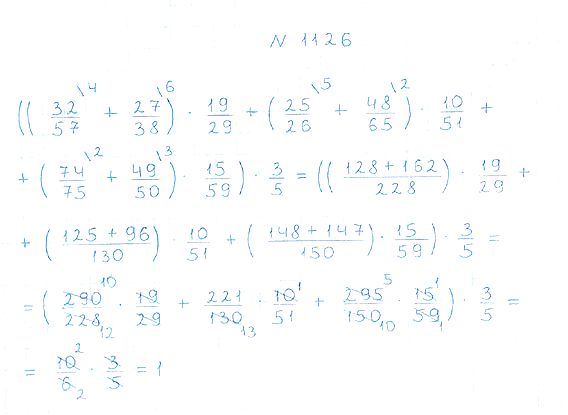 N 1126
(( 32/57 \4 + 27/38 \6 ) · 19/29 + ( 25/26 \5 + 48/65 \2 ) · 10/51 +
+ ( 74/75 \2 + 49/50 \3 ) · 15/59 ) · 3/5 = (( 128+162/228 ) · 19/29 +
+ ( 125+96/130 ) · 10/51 + ( 148+147/150 ) · 15/59 ) · 3/5 =
= ( 290 10/228 12 · 19/29 + 221/130 13 · 10 1/51 + 295 5/150 10 · 15 1/59 1 ) · 3/5 =
= 10 2/6 2 · 3/5 = 1